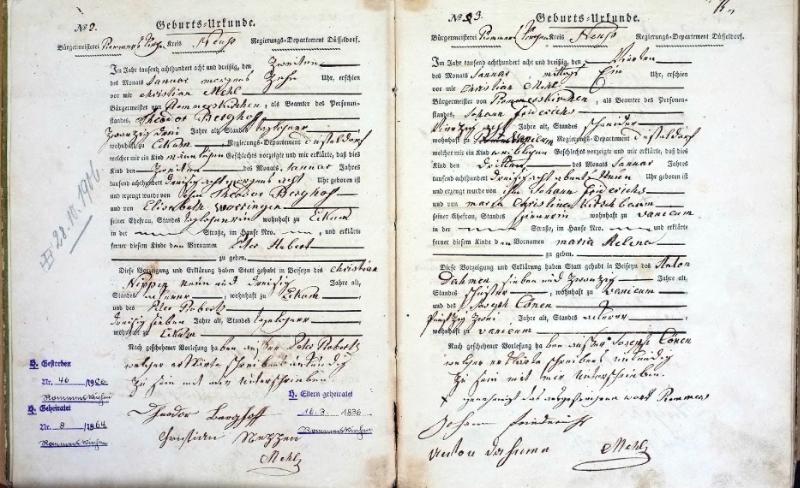 № 2. Geburts-Urkunde.
Bürgermeisterei Kreis Neuß Regierungs-Departement Düsseldorf.
Im Jahr tausend achthundert acht und dreißig, den Zweiten
des Monats Januar morgens Zehn Uhr, erschien
vor mir Christian Mehl
Bürgermeister von Rommerskirchen, als Beamten des Personen-
standes, Theodor Berghof
Zwanzig drei Jahre alt, Standes Taglöhner
zu Eckum Regierungs-Departement Düsseldorf
welcher mir ein Kind männlichen Geschlechts vorzeigte und mir erklärte, daß dies
Kind den zweiten des Monats Januar Jahres
tausend achthundert dreißig acht morgens acht Uhr geboren ist
und erzeugt wurde von ihm Theodor Berghof
und von Elisabeth
seiner Ehefrau, Standes Taglöhnerin wohnhaft zu Eckum
in der Straße, im Hause Nro. , und erklärte
ferner diesem Kinde den Vornamen Peter Hubert
zu geben.
Diese Vorzeigung und Erklärung haben Statt gehabt in Beiseyn des Christian
neun und dreißig Jahre alt,
Standes , wohnhaft zu Eckum
und des Peter Roberts
dreißig sieben Jahre alt, Standes Taglöhner
wohnhaft zu Eckum
Nach geschehener Vorlesung haben außer Peter Roberts
welcher erklärte schreibens unkundig
zu sein mit mir unterschrieben
Theodor Berghoff
Christian
Mehl
28.10.1916
D. Gestorben
Nr. 40 /19
Rommerskirchen
D. Geheiratet
Nr. 8 /1864
Rommerskirchen
D. Eltern geheiratet
16.3. /1836
Rommerskirchen
№ 3. Geburts-Urkunde.
Bürgermeisterei Kreis Neuß Regierungs-Departement Düsseldorf.
Im Jahr tausend achthundert acht und dreißig, den Vierten
des Monats Januar mittags Ein Uhr, erschien
vor mir Christian Mehl
Bürgermeister von Rommerskirchen, als Beamten des Personen-
standes, Johann Friederichs
Vierzig acht Jahre alt, Standes Schneider
zu Vanicum Regierungs-Departement Düsseldorf
welcher mir ein Kind weiblichen Geschlechts vorzeigte und mir erklärte, daß dies
Kind den Dritten des Monats Januar Jahres
tausend achthundert dreißig acht abends neun Uhr geboren ist
und erzeugt wurde von ihm Johann Friederichs
und von Maria Christina
seiner Ehefrau, Standes wohnhaft zu Vanicum
in der Straße, im Hause Nro. und erklärte
ferner diesem Kinde den Vornamen Maria Helena
zu geben.
Diese Vorzeigung und Erklärung haben Statt gehabt in Beiseyn des Anton
Dahmen sieben und zwanzig Jahre alt,
Standes , wohnhaft zu Vanicum
und des Joseph Cönen
Fünfzig zwei Jahre alt, Standes
wohnhaft zu Vanicum
Nach geschehener Vorlesung haben außer Joseph Cönen
welcher erklärte schreibens unkundig
zu sein mit mir unterschrieben.
Johann Friederichs
Anton Dahmen
Mehl